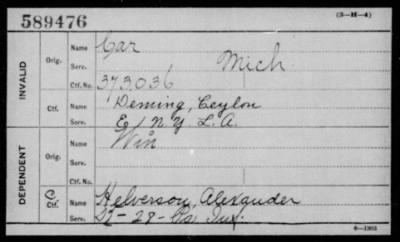 589476
(3-H-4)
INVALID
Orig.
Name Car
Serv. Mich
Ctf. No. 373036
Ctf.
Name Deming, Ceylon
Serv. E 1 N.Y. L.A.
DEPENDENT
Orig.
Name Win
Serv.
Ctf. No.
C
Ctf.
Name Helverson, Alexander
Serv. 22-28-Pa. Inf.
6-1303